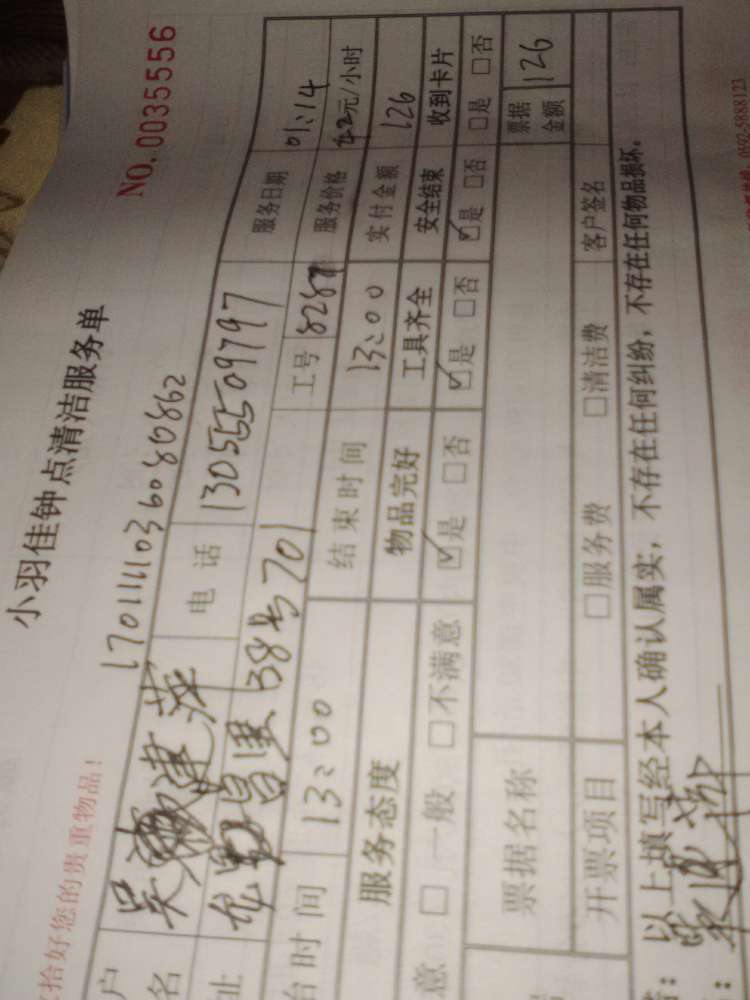 NO. 0035556
小羽佳钟点清洁服务单
拾好您的贵重物品!
170111103608086862
户名 吴建萍 电话 13055509797 服务日期 01:14
址 昌里38号701 工号 8287 服务价格 42元/小时
台时间 13:00 结束时间 13:00 实付金额 126
服务态度 物品完好 工具齐全 安全结束 收到卡片
意 □ 一般 □ 不满意 ☑是 □否 ☑是 □否 ☑是 □否 □是 □否
票据名称 票据金额 126
开票项目 □服务费 □清洁费 客户签名
以上填写经本人确认属实,不存在任何纠纷,不存在任何物品损坏。
0592-5888123